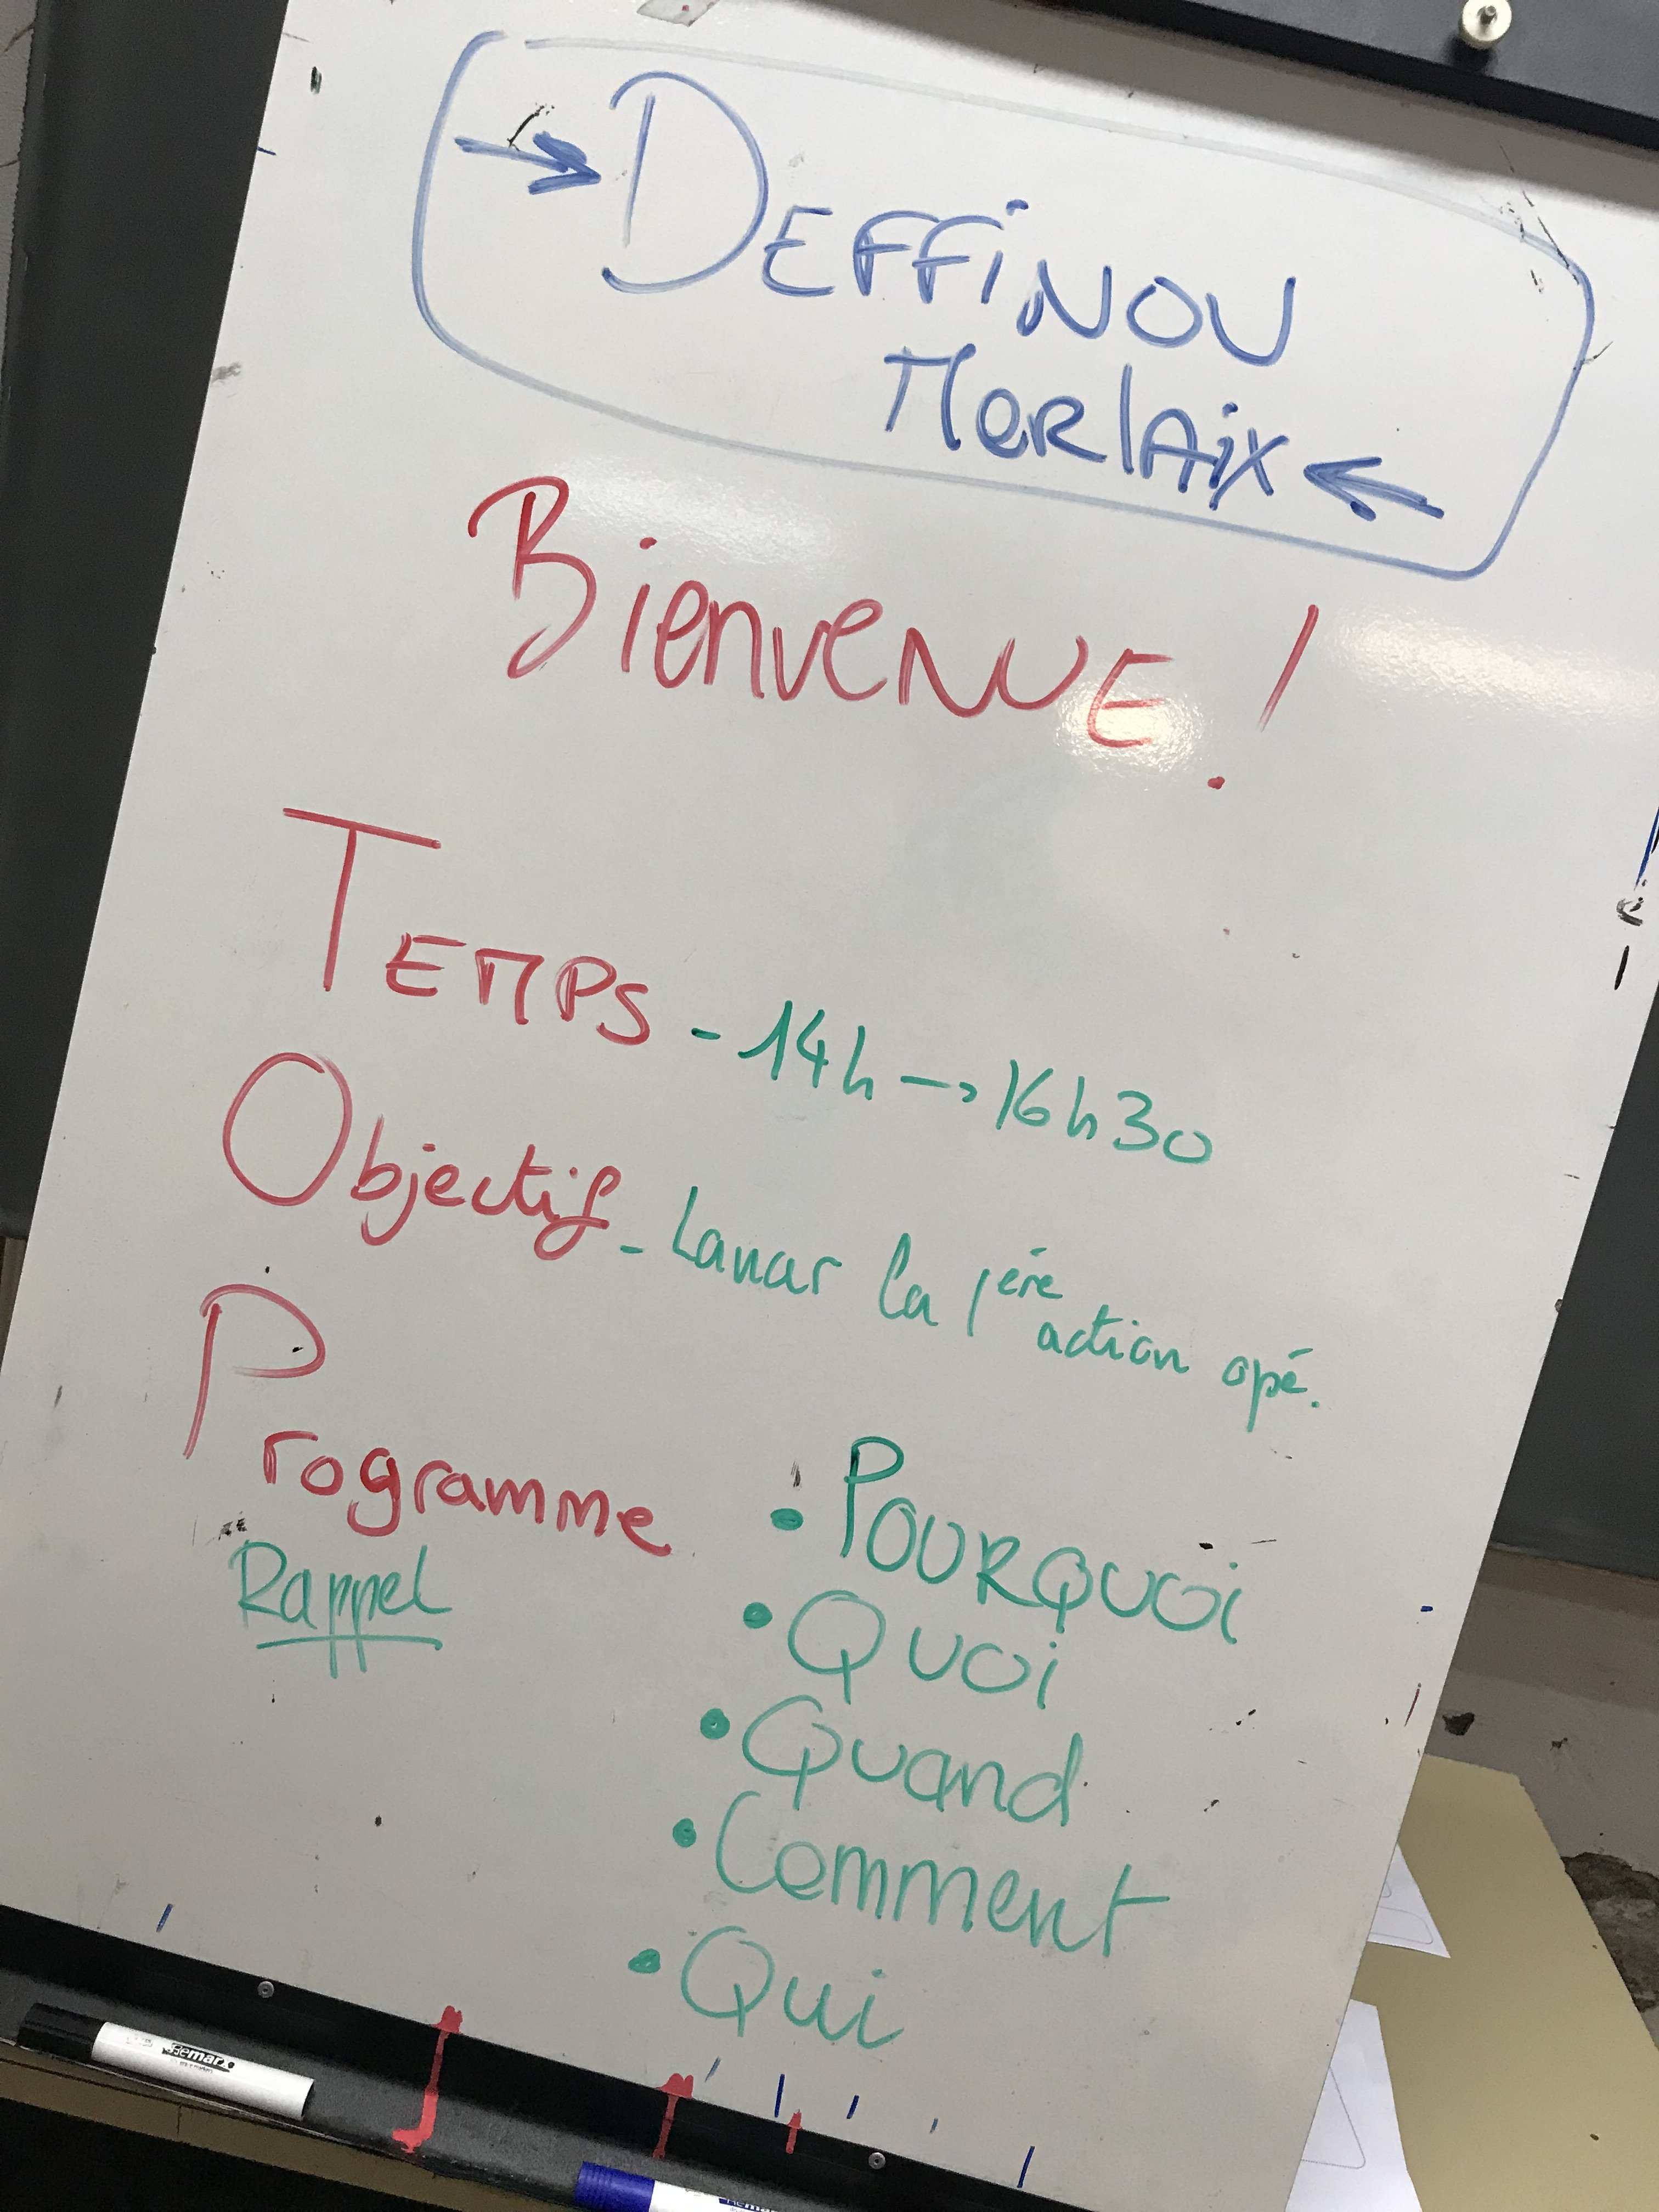 → DEFFiNOU
MORlAiX ←
BienvenUE !
TEMPS - 14h → 16h30
Objectif - Lancer la 1ère
action opé.
Programme
Rappel
• POURQUOi
• QUOi
• Quand
• Comment
• Qui